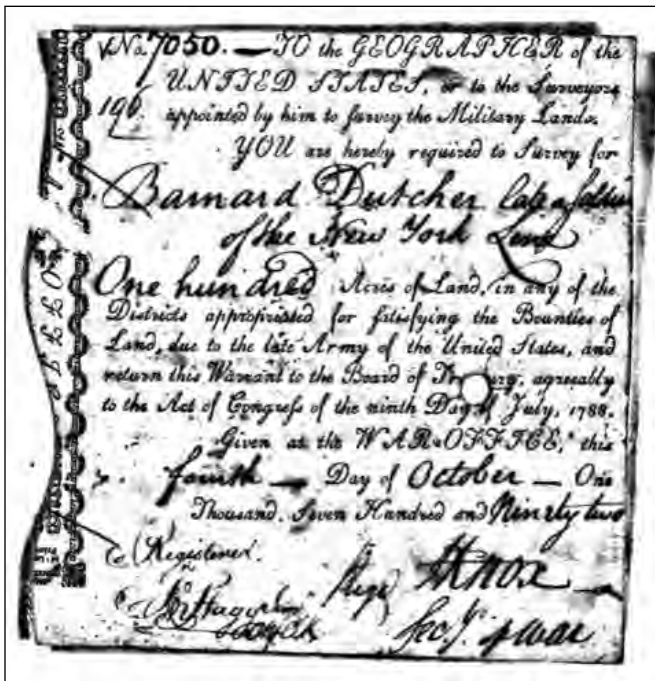 No. 7050. — TO the GEOGRAPHER of the
UNITED STATES, or to the Surveyors
196 appointed by him to survey the Military Lands.
YOU are hereby required to Survey for
Barnard Dutcher late a
of the New York Line
One hundred Acres of Land, in any of the
Districts appropriated for satisfying the Bounties of
Land, due to the late Army of the United States, and
return this Warrant to the Board of agreeably
to the Act of Congress of the ninth Day of July, 1788.
Given at the WAR-OFFICE, this
fourth — Day of October — One
Thousand, Seven Hundred and Ninety two
Registered.
HKnox
Secy. of War